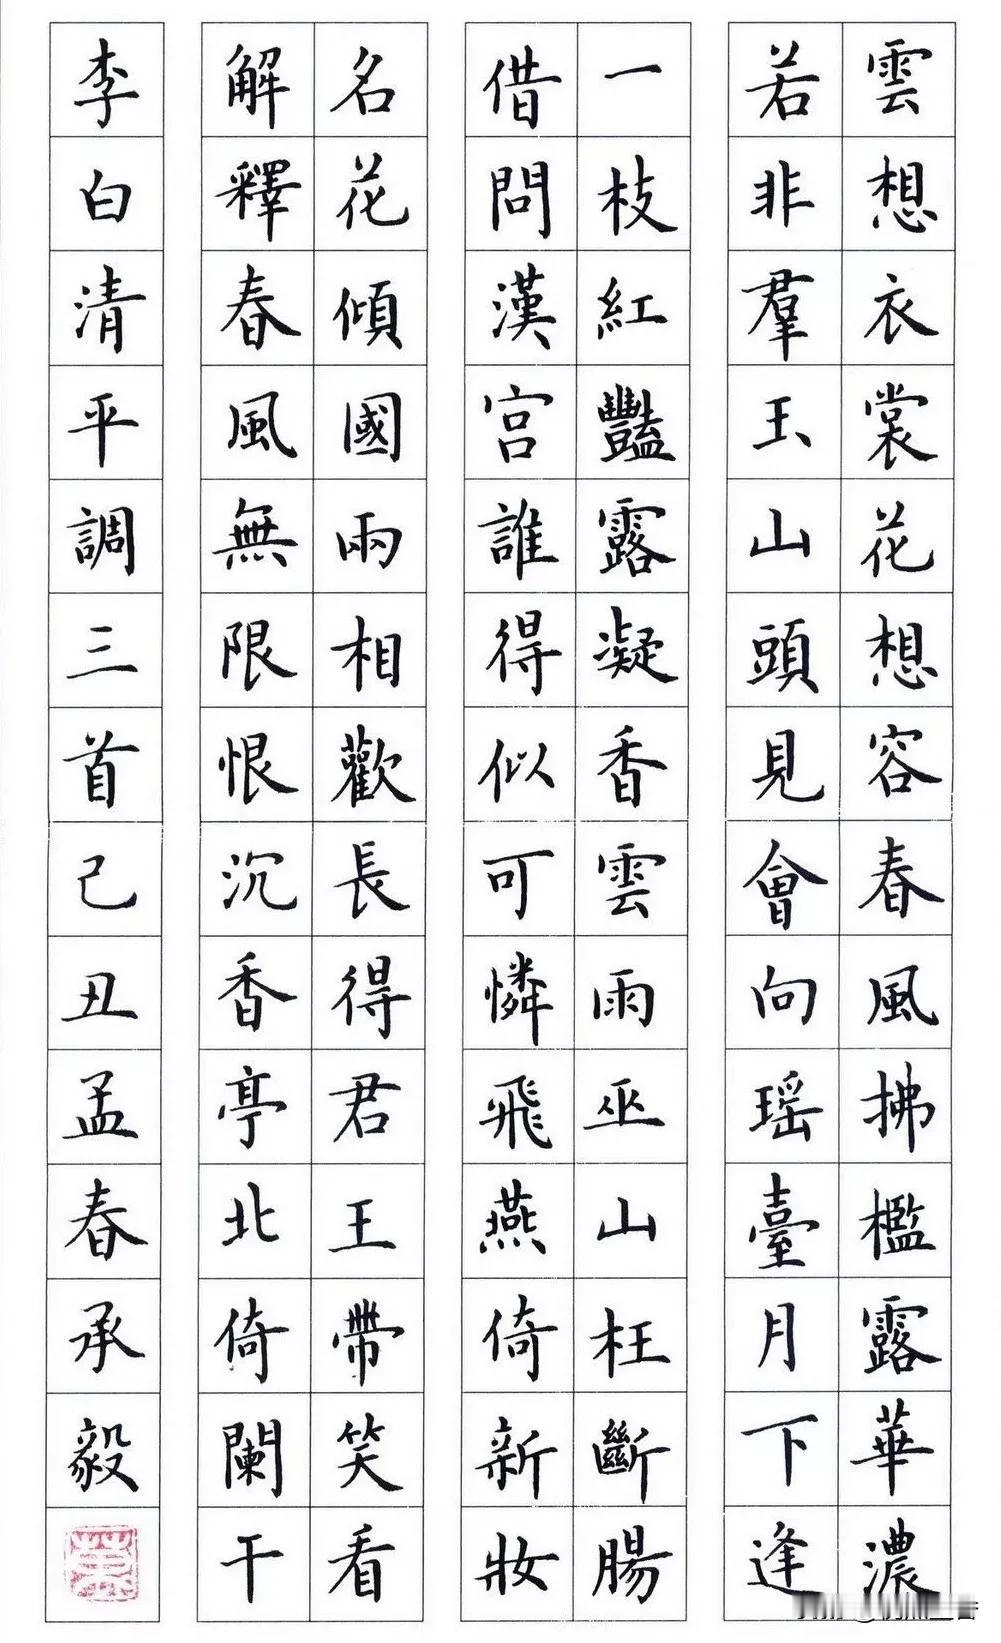 雲想衣裳花想容春風拂檻露華濃
若非羣玉山頭見會向瑶臺月下逢
一枝紅豔露凝香雲雨巫山枉斷腸
借問漢宫誰得似可憐飛燕倚新妝
名花傾國兩相歡長得君王帶笑看
解釋春風無限恨沉香亭北倚闌干
李白清平調三首己丑孟春承毅